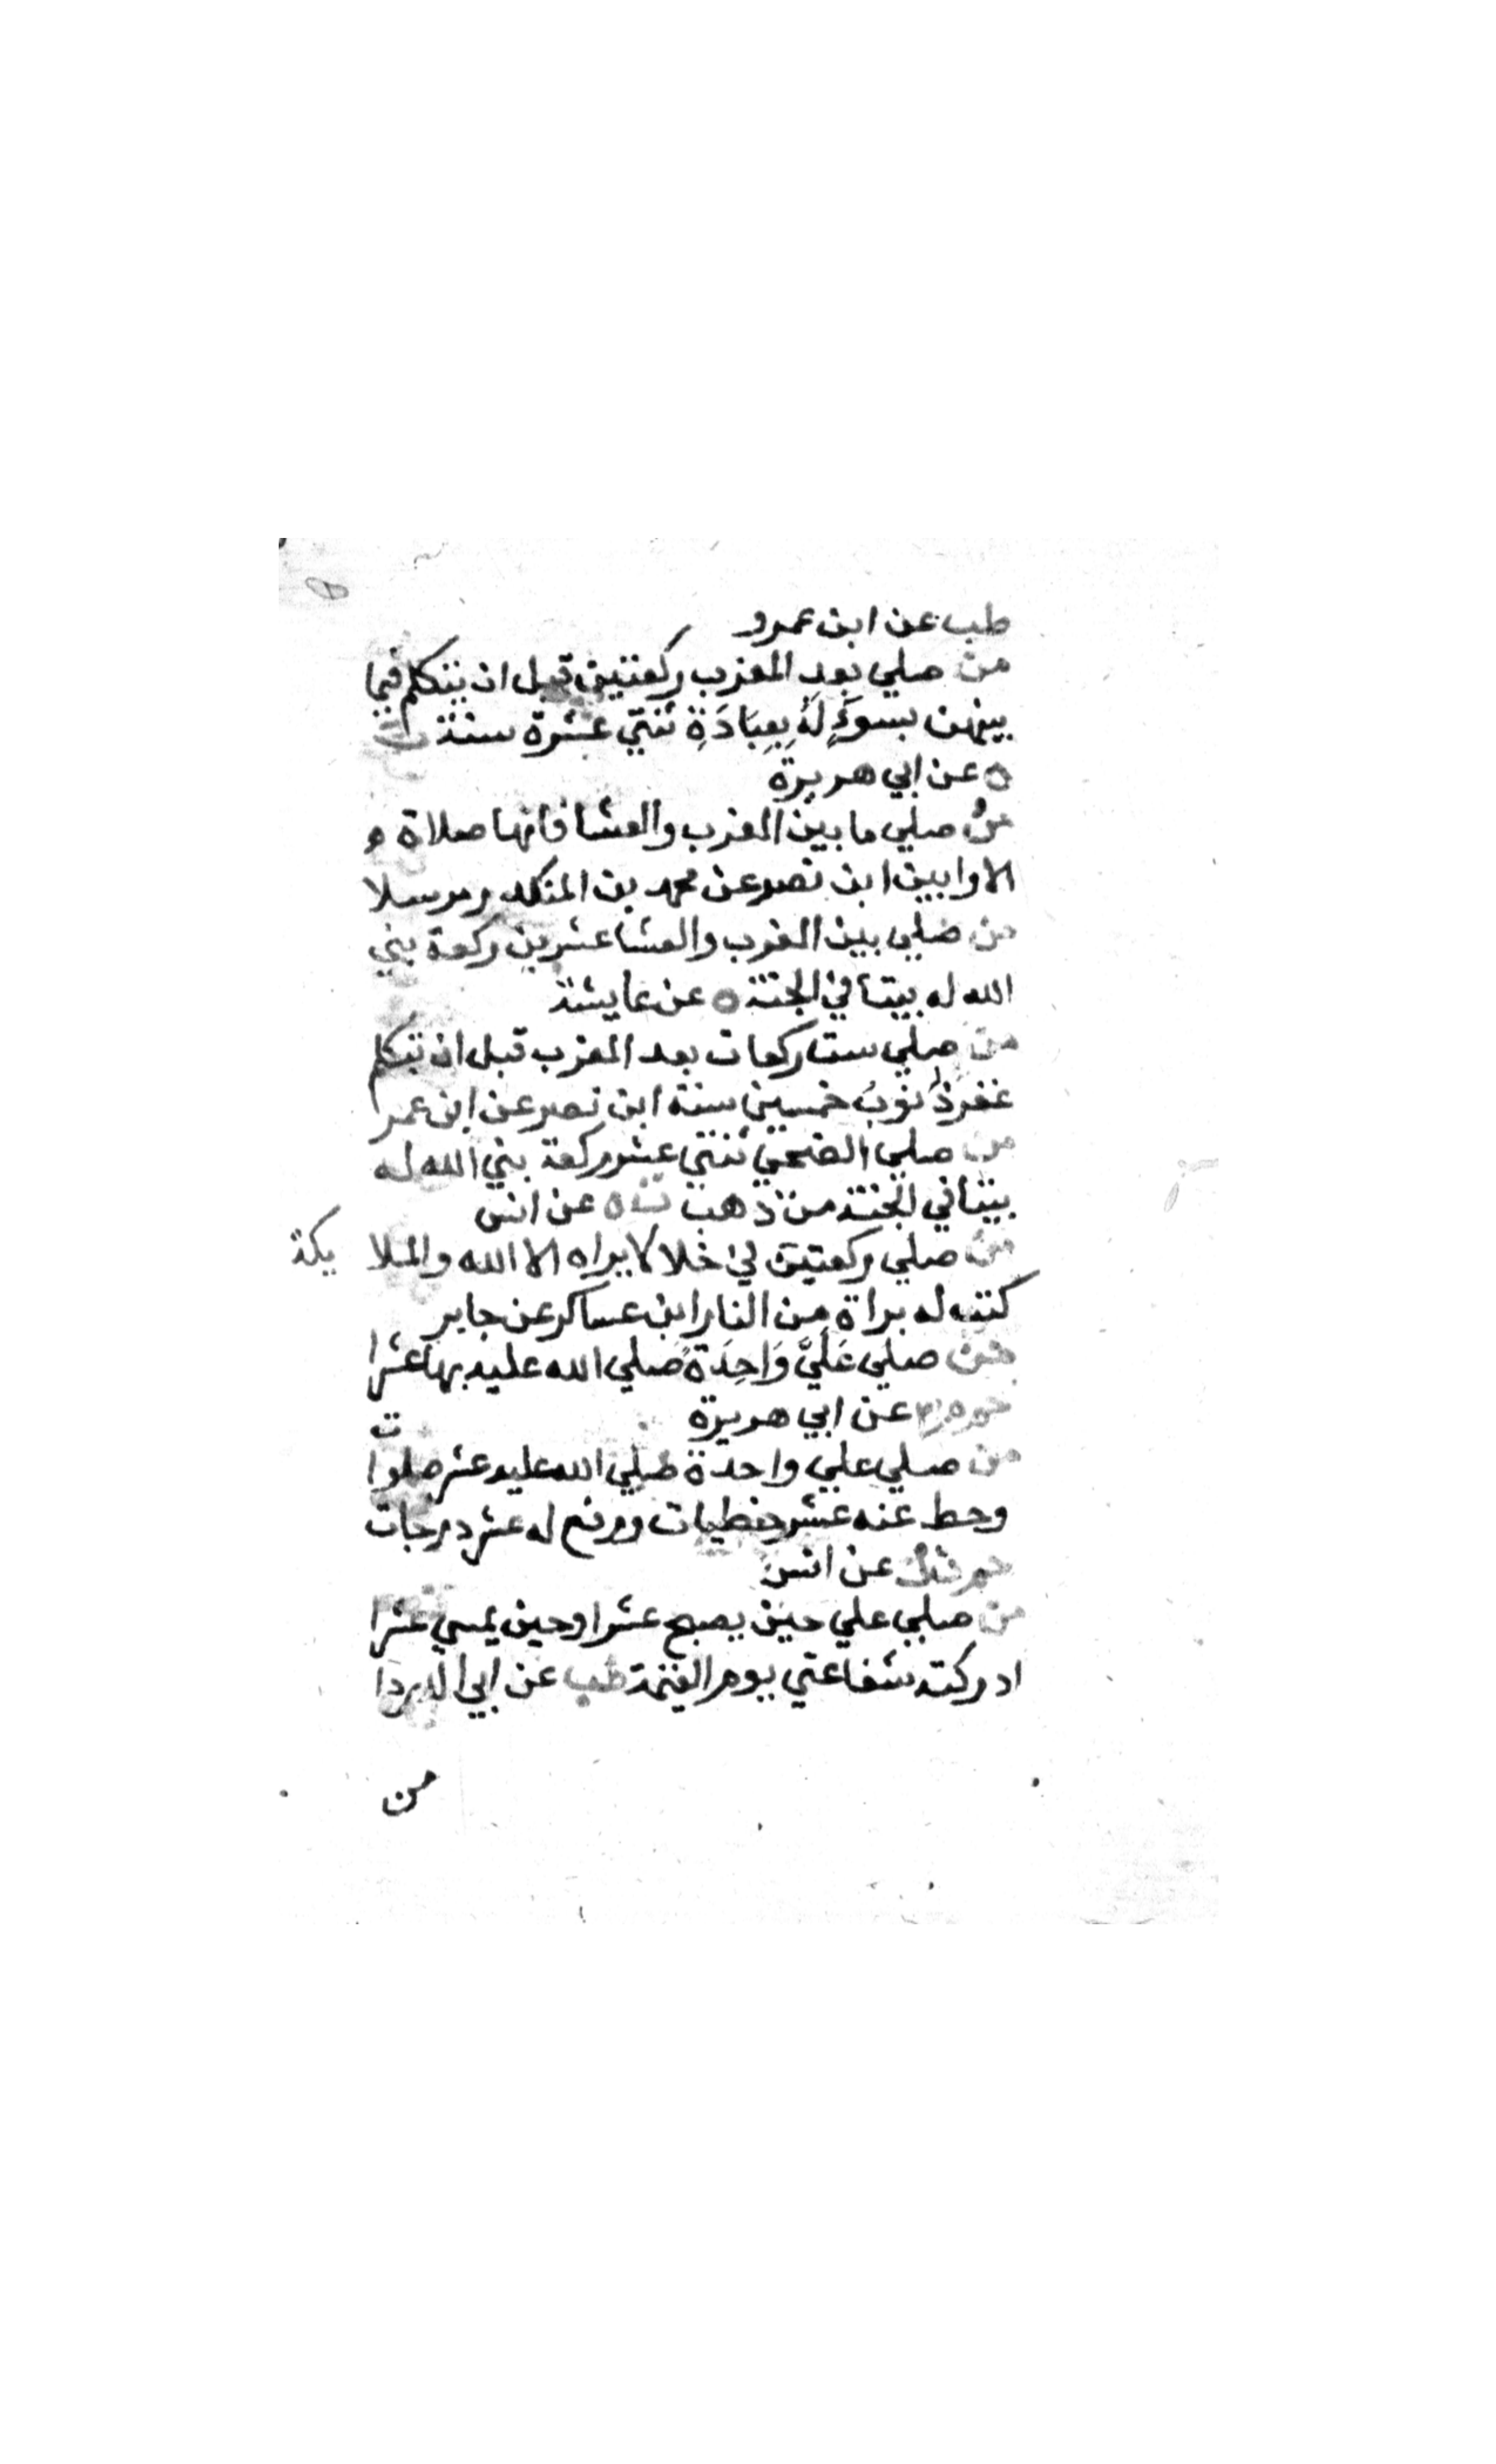 طب عن ابن عمرو
من صلي بعد المغرب ركعتين قبل ان يتكلم فيما
بينهن بسوءٍ لَهُ بِعِبَادَةِ ثنتي عشرة سنة ت
ه عن ابي هريرة
من صلي ما بين المغرب والعشا فانها صلاة
الاوابين ابن نصر عن محمد بن المنكدر مرسلا
من صلي بين المغرب والعشا عشرين ركعة بني
الله له بيتا في الجنة ه عن عايشة
من صلي ست ركعات بعد المغرب قبل ان يتكلم
غفر ذنوب خمسين سنة ابن نصر عن ابن عمر
من صلي الضحي ثنتي عشر ركعة بني الله له
بيتا في الجنة من ذهب ت ه عن انس
من صلي ركعتين في خلا لا يراه الا الله والملا يكة
كتب له براة من النار ابن عساكر عن جابر
من صلي عَلَيَّ وَاحِدَةً صلي الله عليه بها عشرا
عن ابي هريرة
من صلي علي واحدة صلي الله عليه عشر صلوات
وحط عنه عشر خطيات ورفع له عشر درجات
حم خد ك عن انس
من صلي علي حين يصبح عشرا وحين يمسي عشرا
ادركته شفاعتي يوم القيمة طب عن ابي الدردا
من